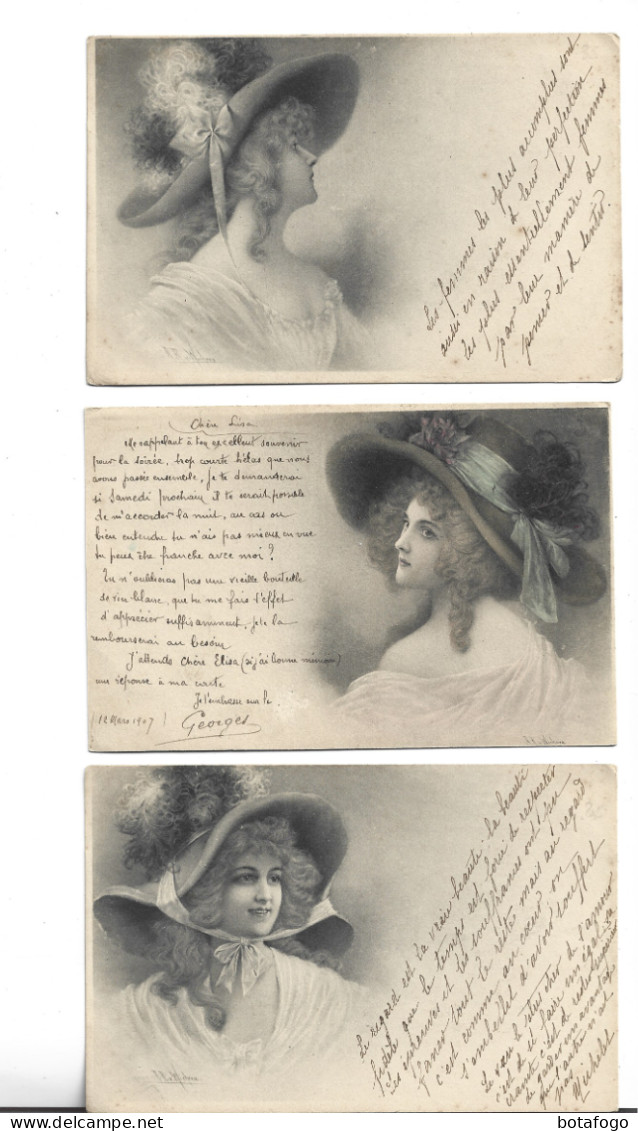 Les femmes les plus accomplies sont
aussi en raison de leur perfection
les plus essentiellement femmes
par leur manière de
penser et de sentir.
Chère Lisa
Me rappelant à ton excellent souvenir
pour la soirée, trop courte hélas que nous
avons passée ensemble, je te demanderai
si Samedi prochain il te serait possible
de m'accorder la nuit, au cas ou
bien entendu tu n'ais pas mieux en vue
tu peux être franche avec moi?
Tu n'oublieras pas une vieille bouteille
de vin blanc, que tu me fais l'effet
d'apprécier suffisamment, je te la
rembourserai au besoin
J'attends chère Elisa (si j'ai bonne mémoire)
une réponse à ma carte
Je t'embrasse sur le.
(12 Mars 1907)
Georges
Le regard est la vraie beauté: la beauté
fidèle que le temps est forcé de respecter
Les épreuves et les souffrances ont pu
faner tout le reste mais au regard
c'est comme au cœur on
s'embellit d'avoir souffert
Le vœu le plus cher de l'amour
c'est de se faire un égal sa
crainte c'est de rester
de garder un avantage
que l'autre n'ait
pas
Michelet
botafogo